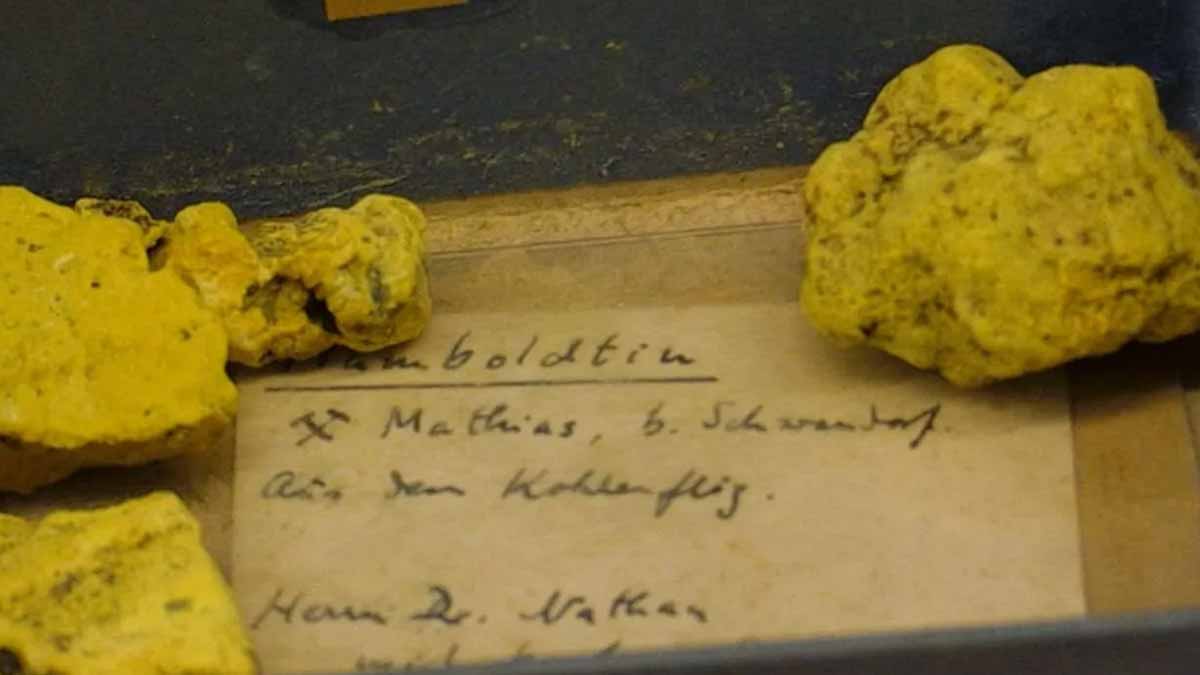 Humboldtin
⚒ Mathias, b. Schwandorf.
Aus dem Kohlenflöz.
Herrn Dr. Nathan